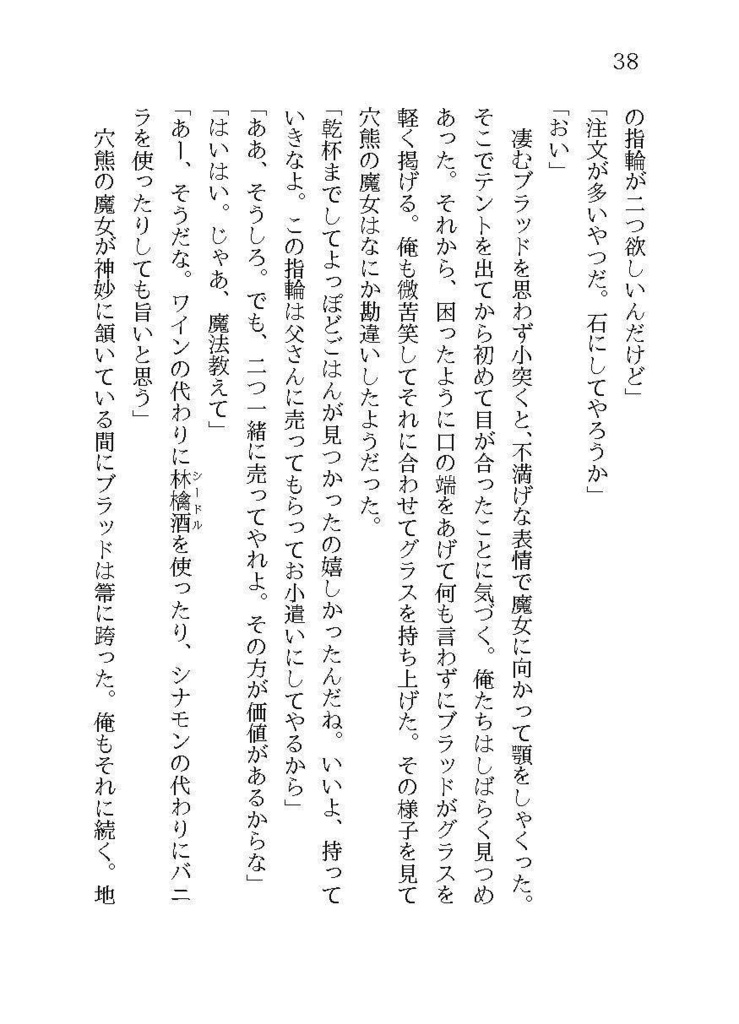 38
の指輪が二つ欲しいんだけど」
「注文が多いやつだ。石にしてやろうか」
「おい」
凄むブラッドを思わず小突くと、不満げな表情で魔女に向かって顎をしゃくった。
そこでテントを出てから初めて目が合ったことに気づく。俺たちはしばらく見つめ
あった。それから、困ったように口の端をあげて何も言わずにブラッドがグラスを
軽く掲げる。俺も微苦笑してそれに合わせてグラスを持ち上げた。その様子を見て
穴熊の魔女はなにか勘違いしたようだった。
「乾杯までしてよっぽどごはんが見つかったの嬉しかったんだね。いいよ、持って
いきなよ。この指輪は父さんに売ってもらってお小遣いにしてやるから」
「ああ、そうしろ。でも、二つ一緒に売ってやれよ。その方が価値があるからな」
「はいはい。じゃあ、魔法教えて」
「あー、そうだな。ワインの代わりに林檎酒シードルを使ったり、シナモンの代わりにバニ
ラを使ったりしても旨いと思う」
穴熊の魔女が神妙に頷いている間にブラッドは箒に跨った。俺もそれに続く。地